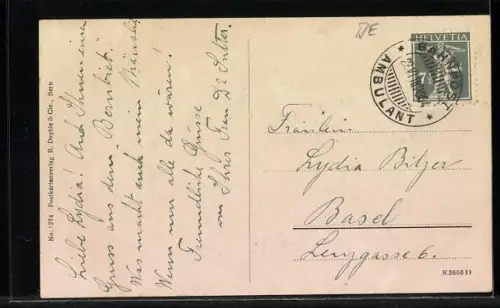 DE
HELVETIA
7½
BAHNPOST
AMBULANT
No. 1274 Postkartenverlag R. Deyhle & Cie., Bern
Liebe Lydia! Auch Ihnen einen
Gruss aus dem Bernbiet.
Was macht auch mein
Wenn nur alle da wären!
Freundliche Grüsse
von Ihrer Frau Dr. Sutter.
Fräulein
Lydia Bitzer
Basel
Lenzgasse 6.